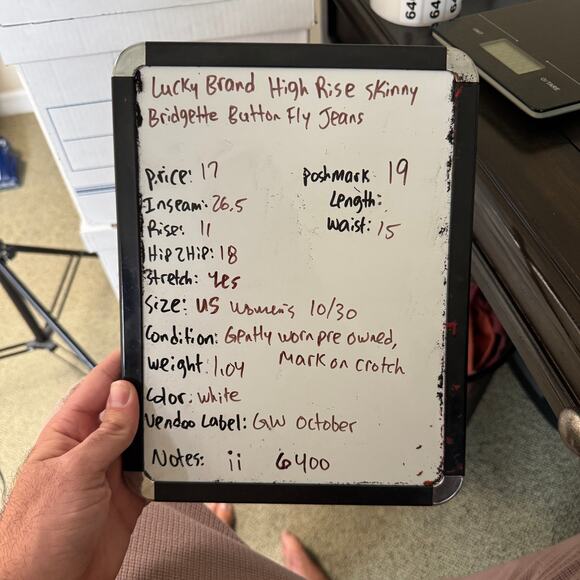 Lucky Brand High Rise Skinny
Bridgette Button Fly Jeans
Price: 17
Poshmark 19
Inseam: 26.5
Length:
Rise: 11
Waist: 15
Hip2Hip: 18
Stretch: Yes
Size: US Women's 10/30
Condition: Gently worn pre owned,
Mark on crotch
Weight: 1.04
Color: White
Vendoo Label: GW October
Notes: ii 6400